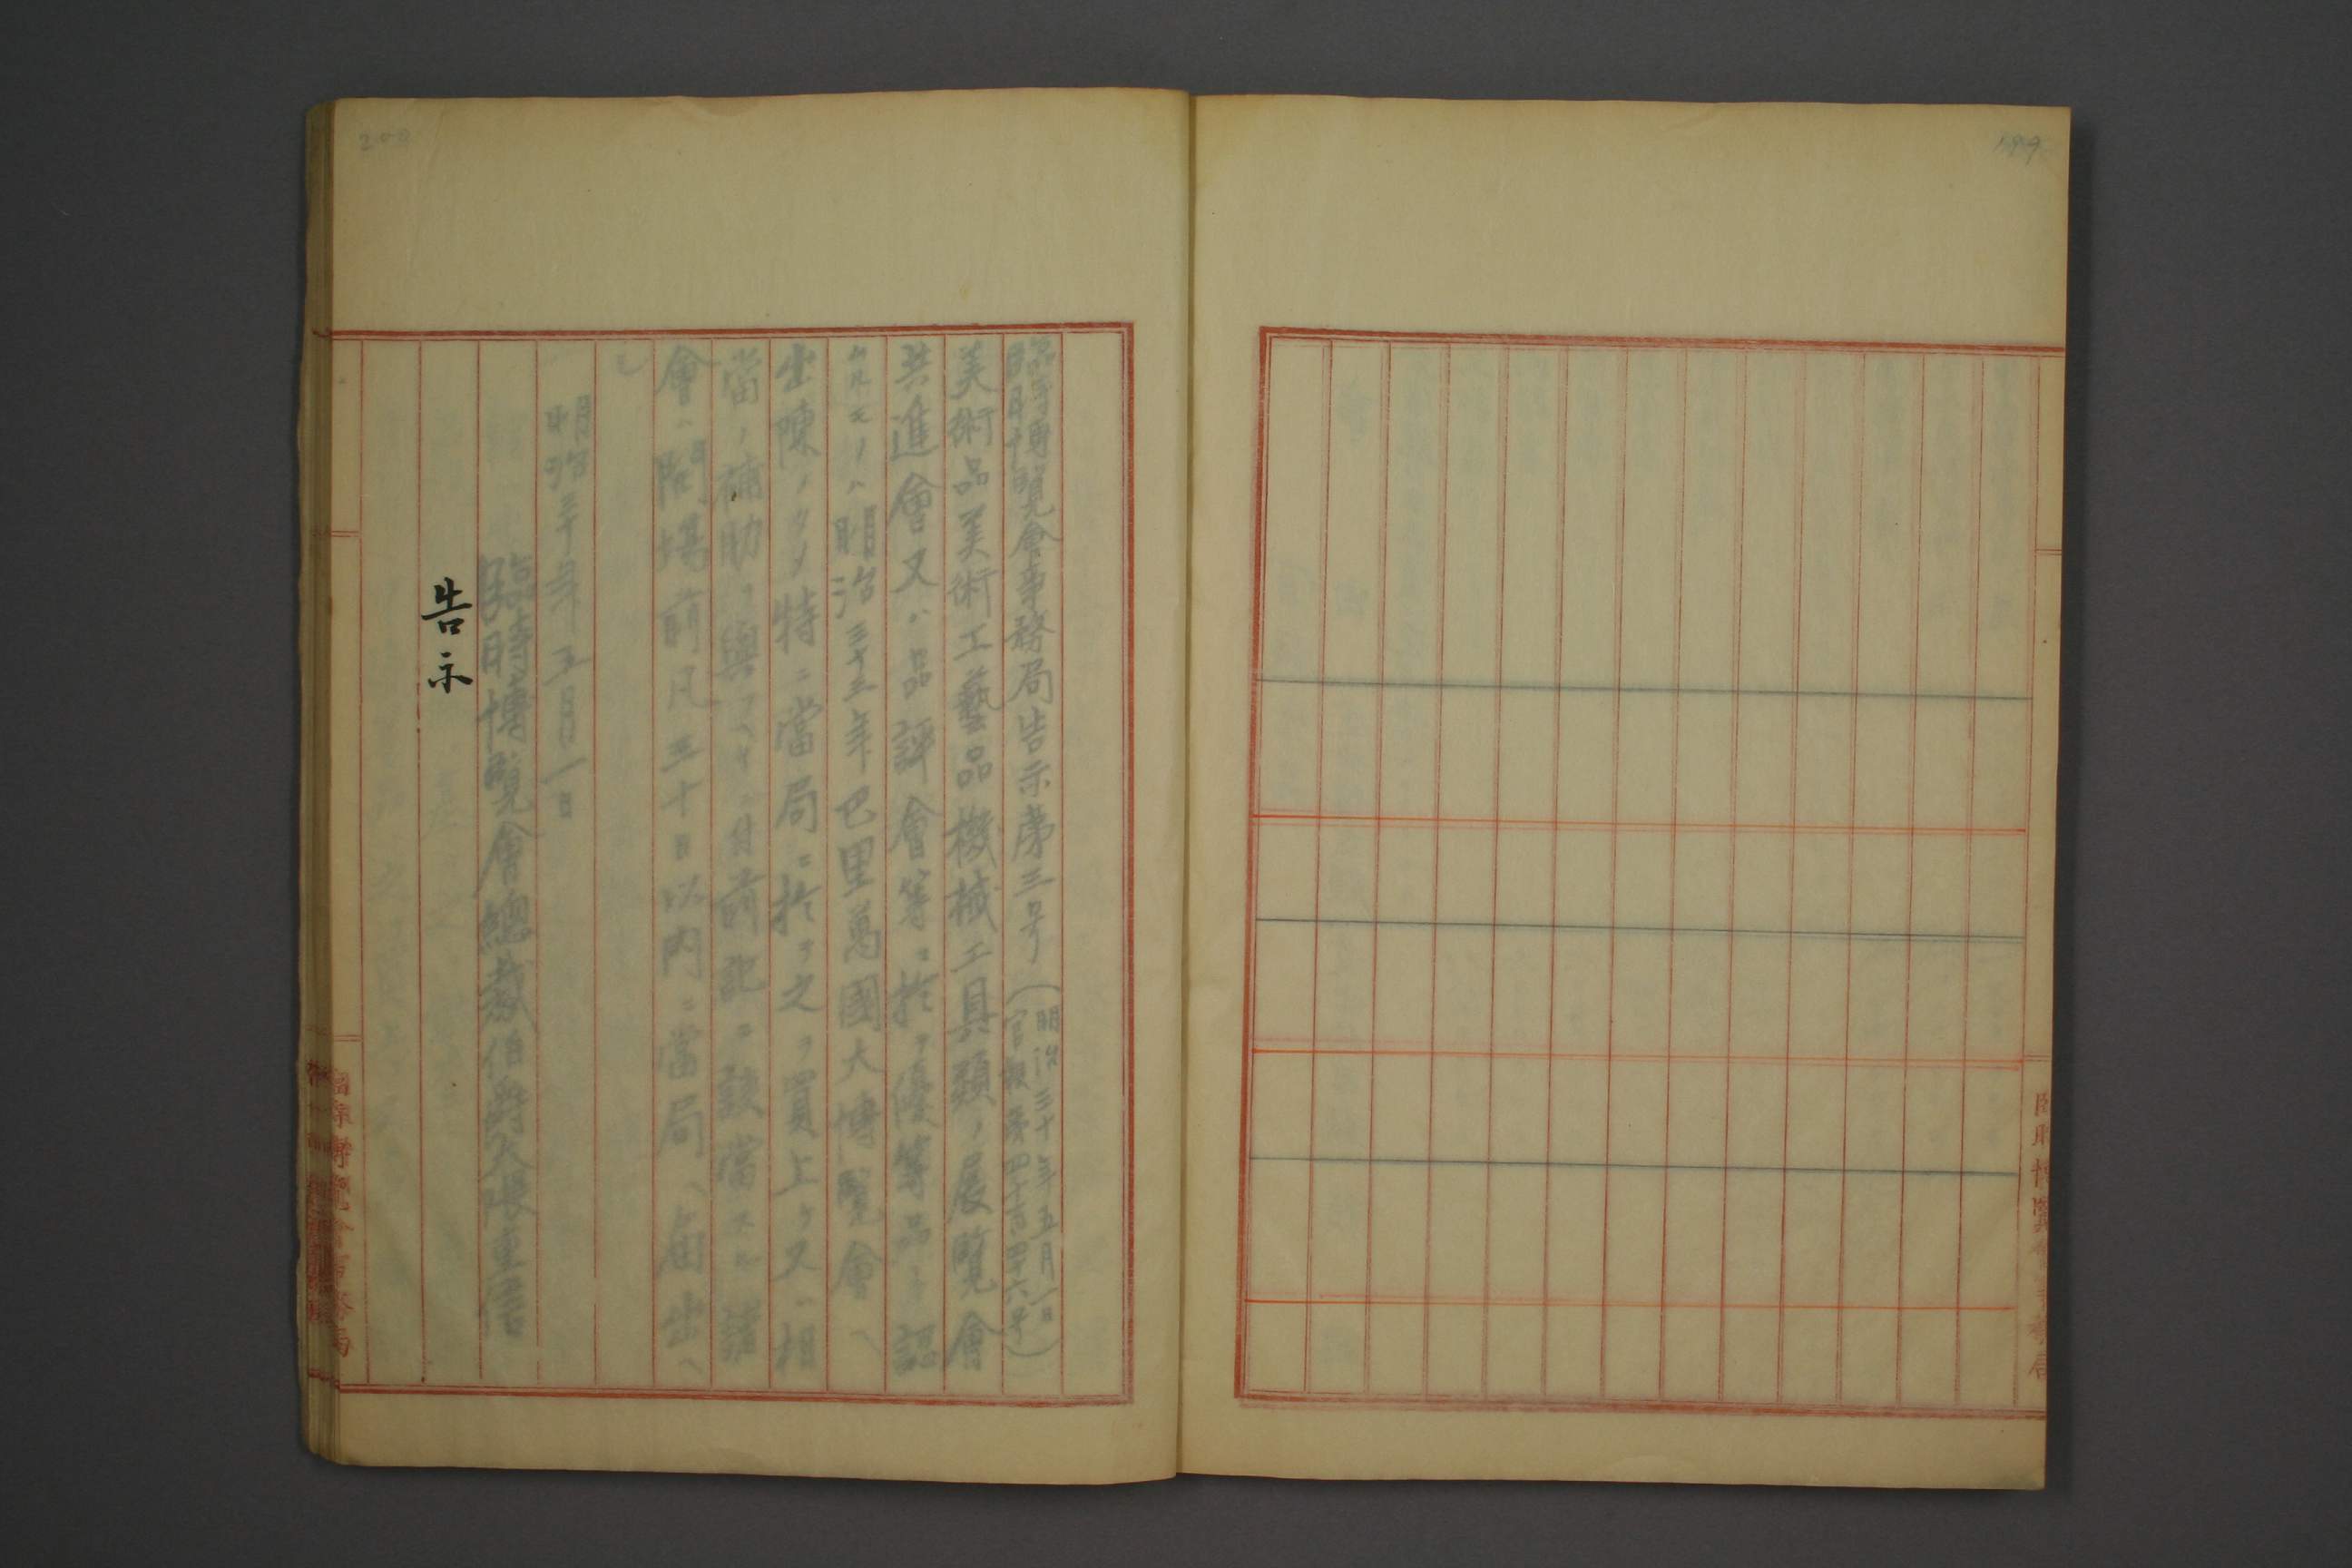 199
臨時博覽會事務局
臨時博覽會事務局告示第三号(明治三十年五月一日
官報第四千百四十六号)
美術品美術工藝品機械工具類ノ展覽會
共進會又ハ品評會等ニ於テ優等品ト認
ムルモノハ明治三十三年巴里萬國大博覽會ヘ
出陳ノタメ特ニ當局ニ於テ之ヲ買上ケ又ハ相
當ノ補助ヲ與フヘキニ付前記ニ該當スル諸
會ハ開場前凡三十日以內ニ當局ヘ届出ヘ
シ
明治三十年五月一日
臨時博覽會總裁伯爵大隈重信
告示
200
臨時博覽會事務局